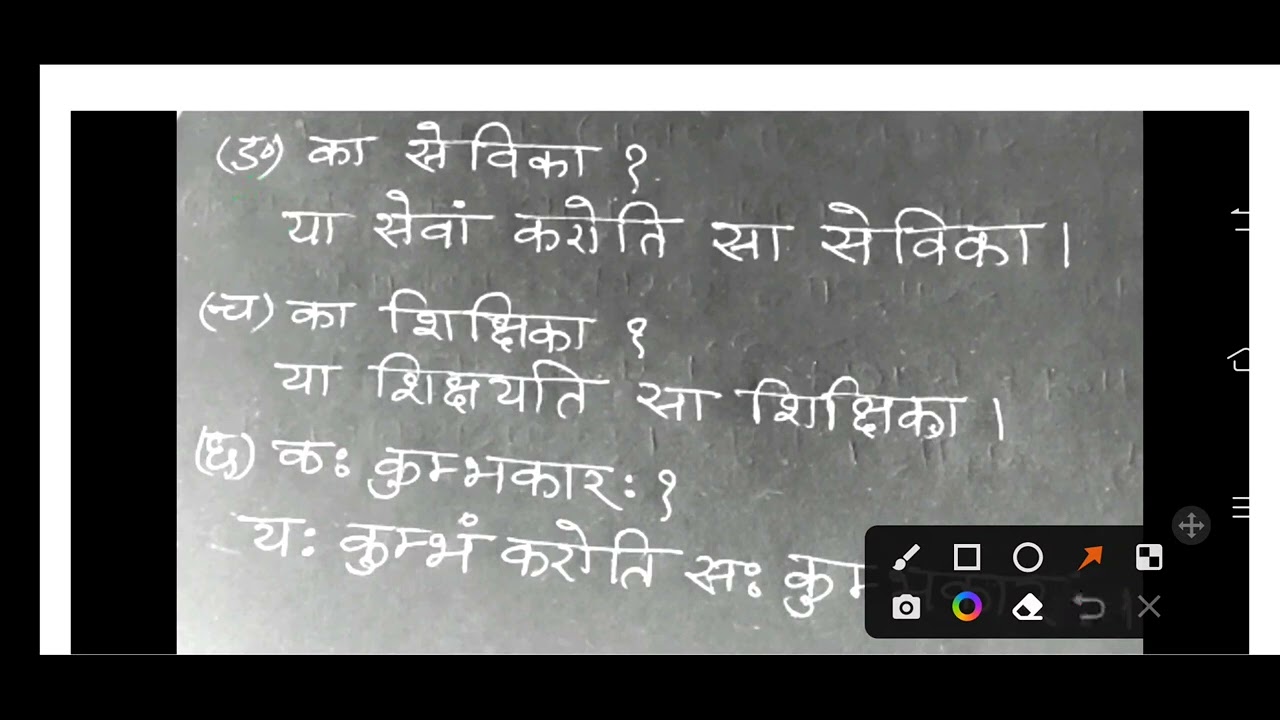 (ङ) का सेविका ?
या सेवां करोति सा सेविका ।
(च) का शिक्षिका ?
या शिक्षयति सा शिक्षिका ।
(छ) कः कुम्भकारः ?
यः कुम्भं करोति सः कुम्भकारः ।